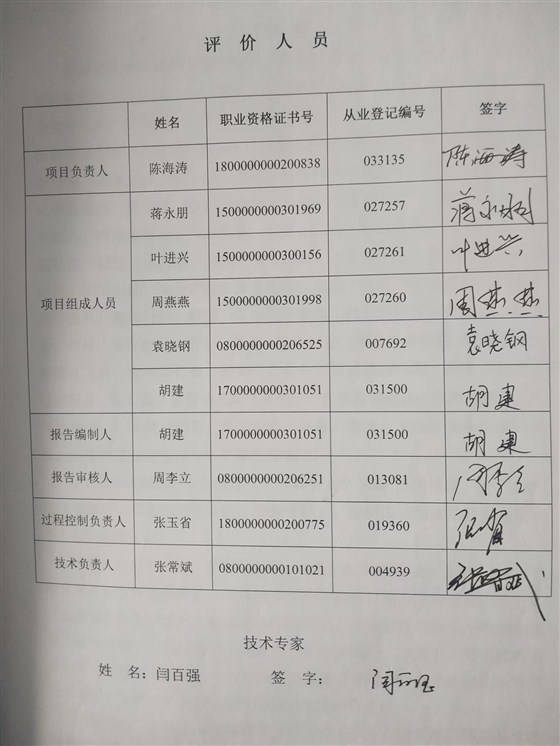 评 价 人 员
姓名 职业资格证书号 从业登记编号 签字
项目负责人 陈海涛 1800000000200838 033135 陈海涛
项目组成人员 蒋永朋 1500000000301969 027257 蒋永朋
叶进兴 1500000000300156 027261 叶进兴
周燕燕 1500000000301998 027260 周燕燕
袁晓钢 0800000000206525 007692 袁晓钢
胡建 1700000000301051 031500 胡建
报告编制人 胡建 1700000000301051 031500 胡建
报告审核人 周李立 0800000000206251 013081 周李立
过程控制负责人 张玉省 1800000000200775 019360
技术负责人 张常斌 0800000000101021 004939
技术专家
姓 名:闫百强 签 字: